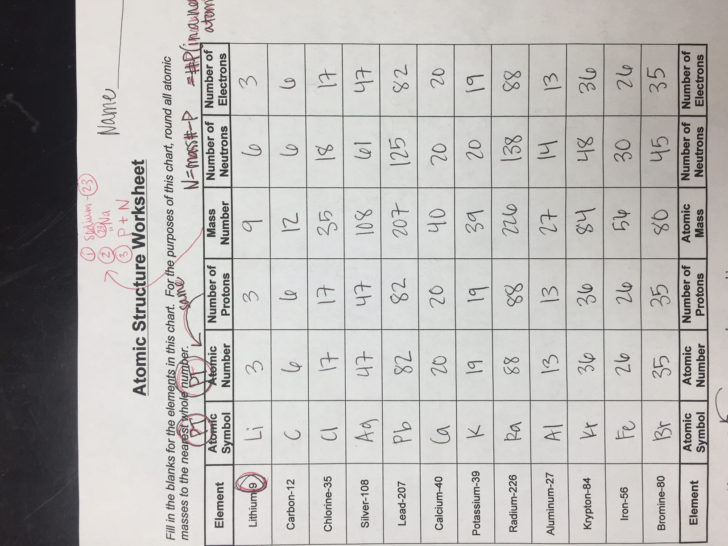 Name
① sodium-23
② ²³Na
③ P + N
Atomic Structure Worksheet
Fill in the blanks for the elements in this chart. For the purposes of this chart, round all atomic
masses to the nearest whole number.
PT
PT
same
N=mass#-P
=#P(in a
atom
Element Atomic Symbol Atomic Number Number of Protons Mass Number Number of Neutrons Number of Electrons
Lithium-9 Li 3 3 9 6 3
Carbon-12 C 6 6 12 6 6
Chlorine-35 Cl 17 17 35 18 17
Silver-108 Ag 47 47 108 61 47
Lead-207 Pb 82 82 207 125 82
Calcium-40 Ca 20 20 40 20 20
Potassium-39 K 19 19 39 20 19
Radium-226 Ra 88 88 226 138 88
Aluminum-27 Al 13 13 27 14 13
Krypton-84 Kr 36 36 84 48 36
Iron-56 Fe 26 26 56 30 26
Bromine-80 Br 35 35 80 45 35
Element Atomic Symbol Atomic Number Number of Protons Atomic Mass Number of Neutrons Number of Electrons